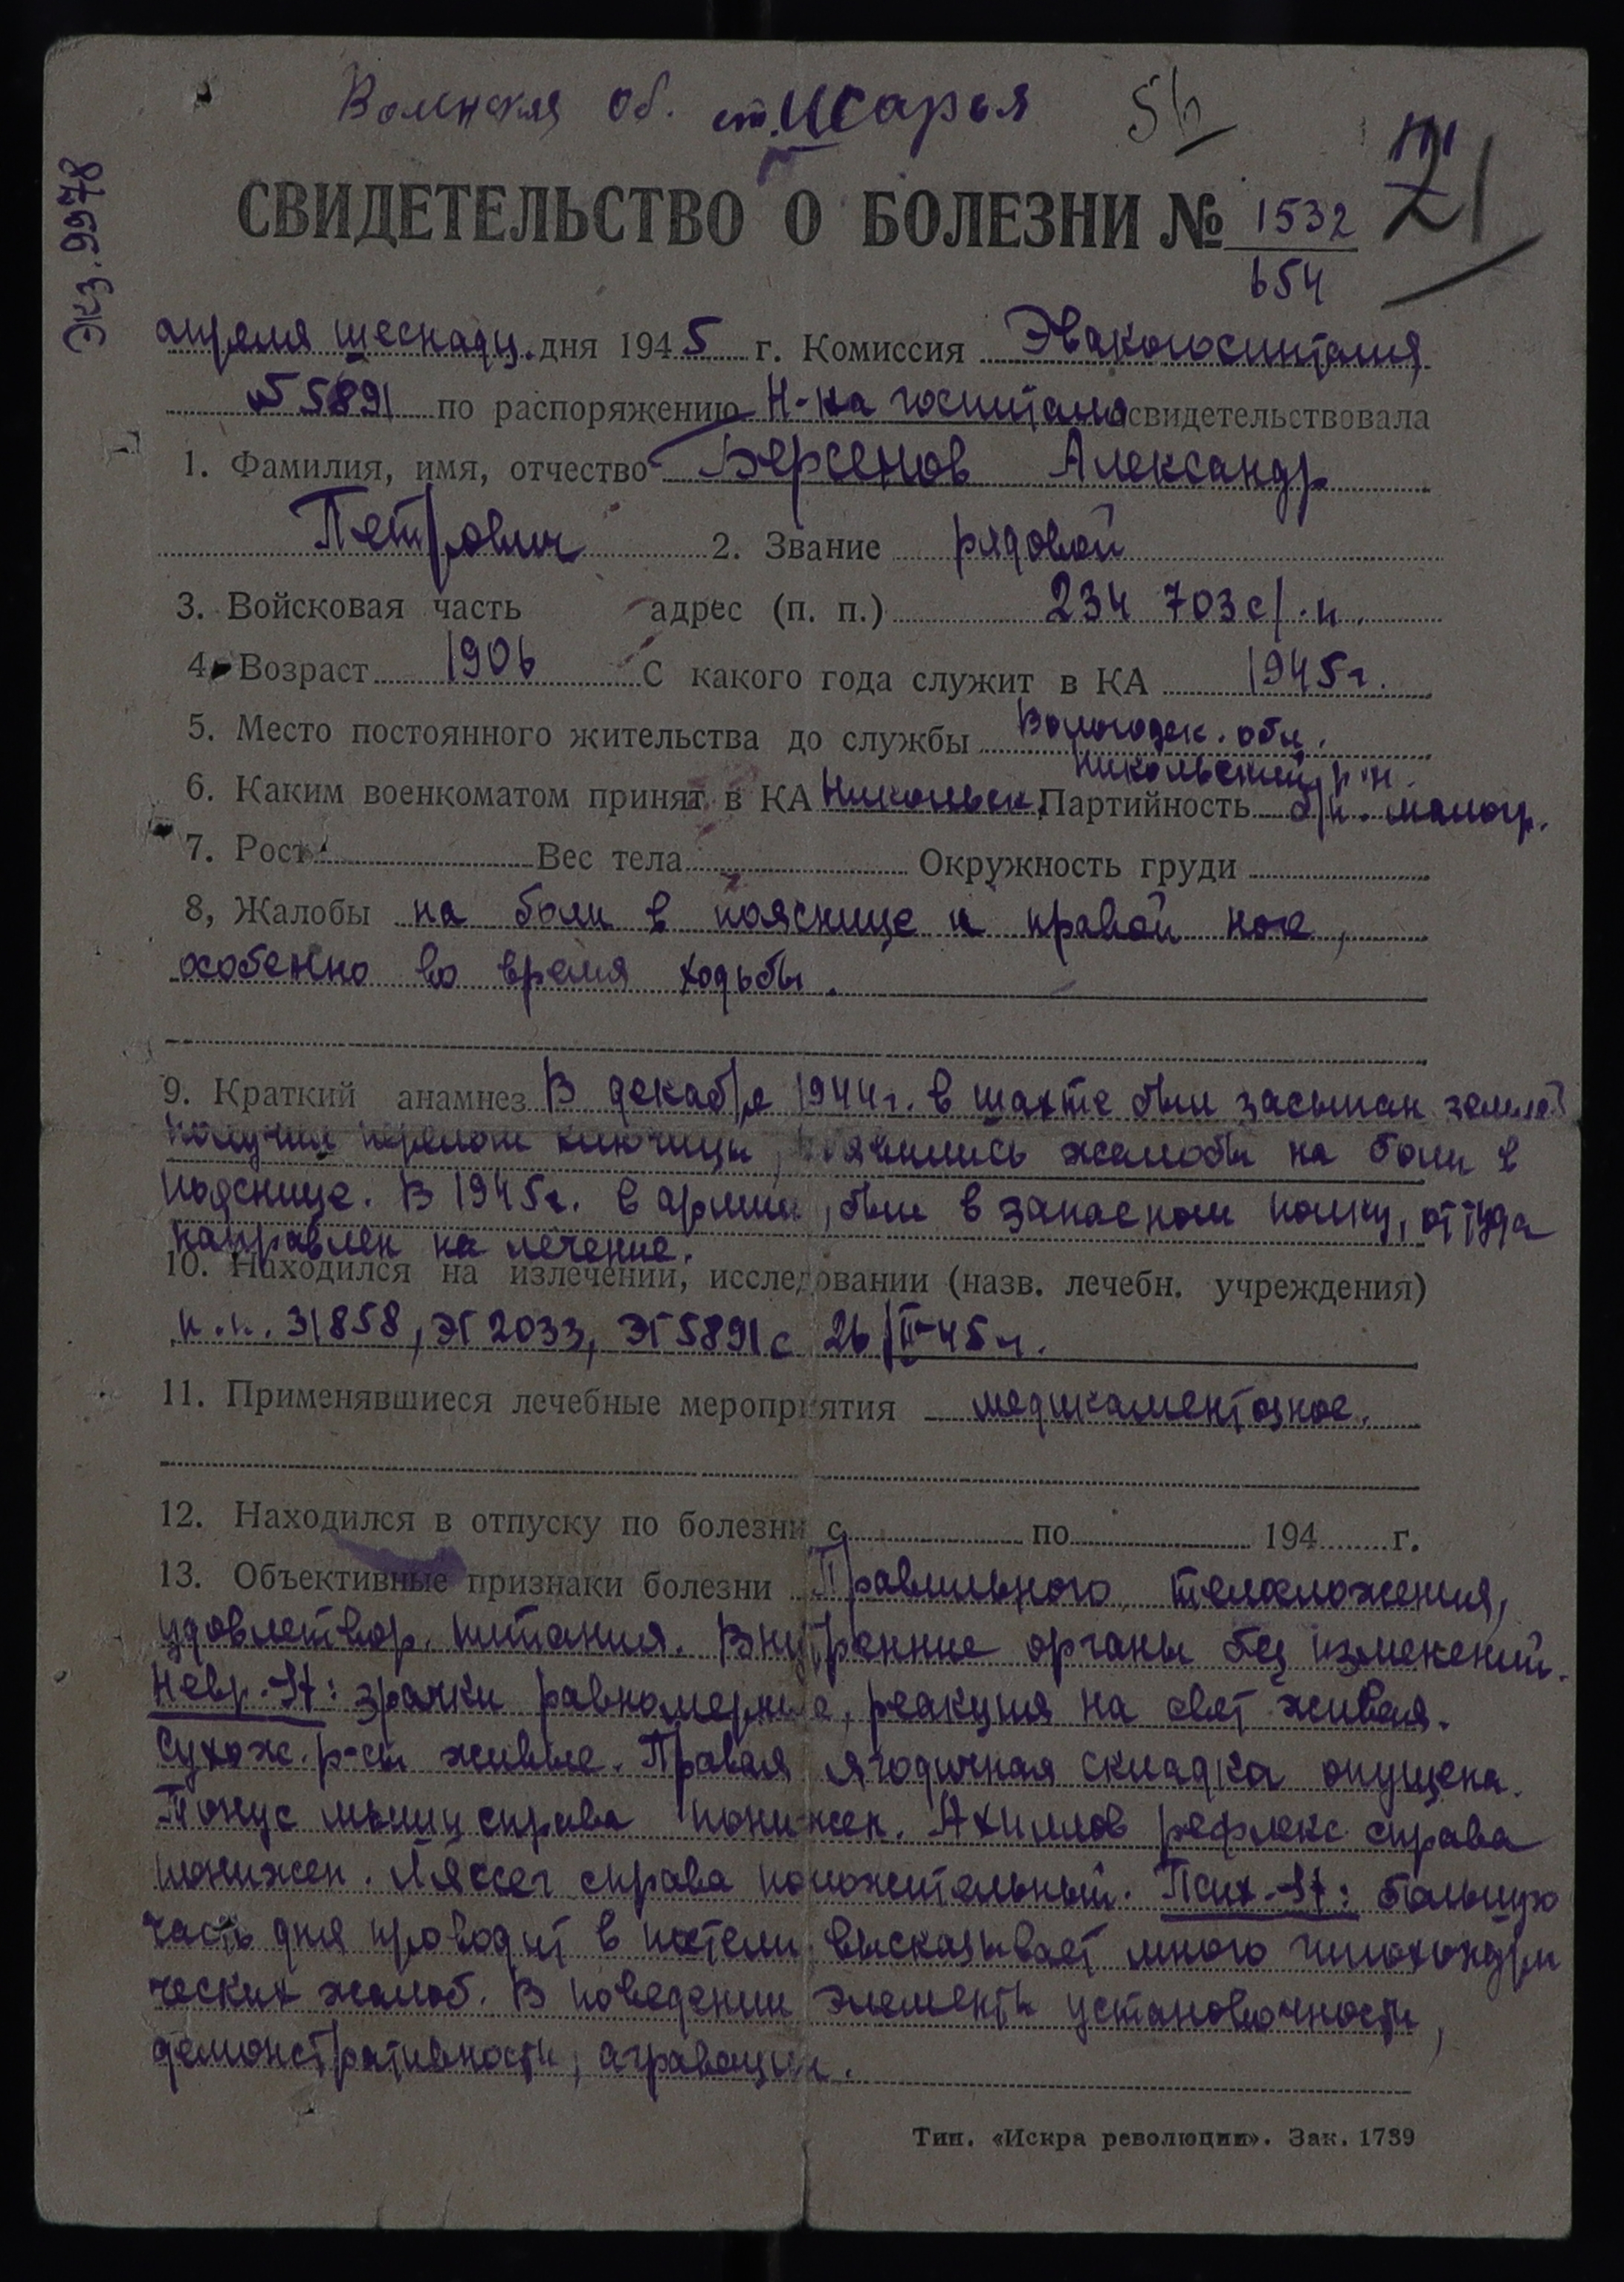 об. ст. Шарья 56
21
Экз. 9978
СВИДЕТЕЛЬСТВО О БОЛЕЗНИ № 1532
654
апреля шеснадц. дня 1945 г. Комиссия Эвакогоспиталя
№ 5891 по распоряжению Н-ка госпиталя свидетельствовала
1. Фамилия, имя, отчество Берсенов Александр
Петрович 2. Звание рядовой
3. Войсковая часть адрес (п. п.) 234 703 с/.п.
4. Возраст 1906 С какого года служит в КА 1945г.
5. Место постоянного жительства до службы Вологодск. обл.
Никольский р-н.
6. Каким военкоматом принят в КА Никольск. Партийность б/п. малогр.
7. Рост Вес тела Окружность груди
8, Жалобы на боли в пояснице и правой ноге,
особенно во время ходьбы.
9. Краткий анамнез В декабре 1944г. в шахте был засыпан землей
получил перелом ключицы, появились жалобы на боли в
пояснице. В 1945г. в армии, был в запасном полку, оттуда
направлен на лечение.
10. Находился на излечении, исследовании (назв. лечебн. учреждения)
п.п. 31858, ЭГ 2033, ЭГ 5891 с 26/II-45г.
11. Применявшиеся лечебные мероприятия медикаментозное.
12. Находился в отпуску по болезни с по 194 г.
13. Объективные признаки болезни Правильного телосложения,
удовлетвор. питания. Внутренние органы без изменений.
Невр. St: зрачки равномерные, реакция на свет живая.
Сухож. р-сы живые. Правая ягодичная складка опущена.
Тонус мышц справа понижен. Ахиллов рефлекс справа
понижен. Ляссег справа положительный. Псих. St: большую
часть дня проводит в постели, высказывает много ипохондри
ческих жалоб. В поведении элементы установочности,
демонстративности, агравации.
Тип. «Искра революции». Зак. 1739